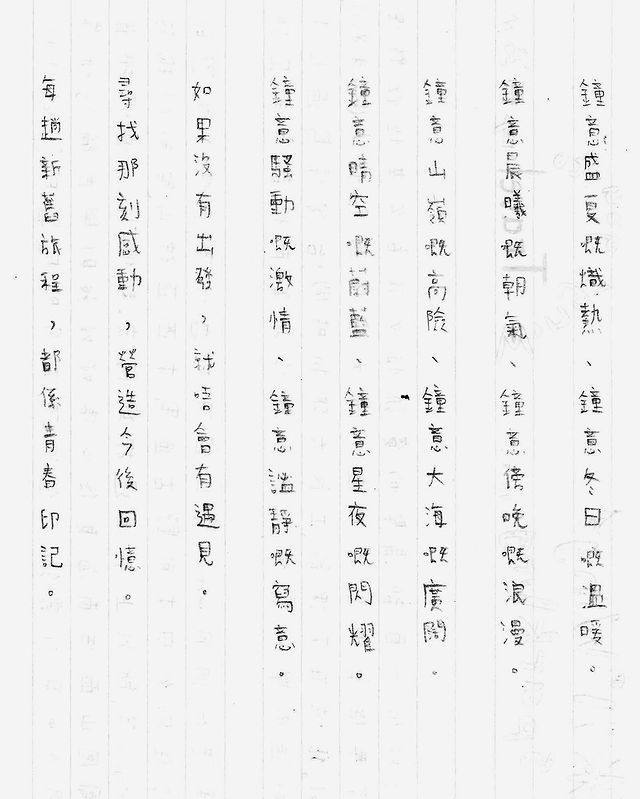 鐘意盛夏嘅熾熱、鐘意冬日嘅溫暖。
鐘意晨曦嘅朝氣、鐘意傍晚嘅浪漫。
鐘意山嶺嘅高險、鐘意大海嘅廣闊。
鐘意晴空嘅蔚藍、鐘意星夜嘅閃耀。
鐘意騷動嘅激情、鐘意謐靜嘅寫意。
如果沒有出發，就唔會有遇見。
尋找那刻感動，營造今後回憶。
每趟新舊旅程，都係青春印記。